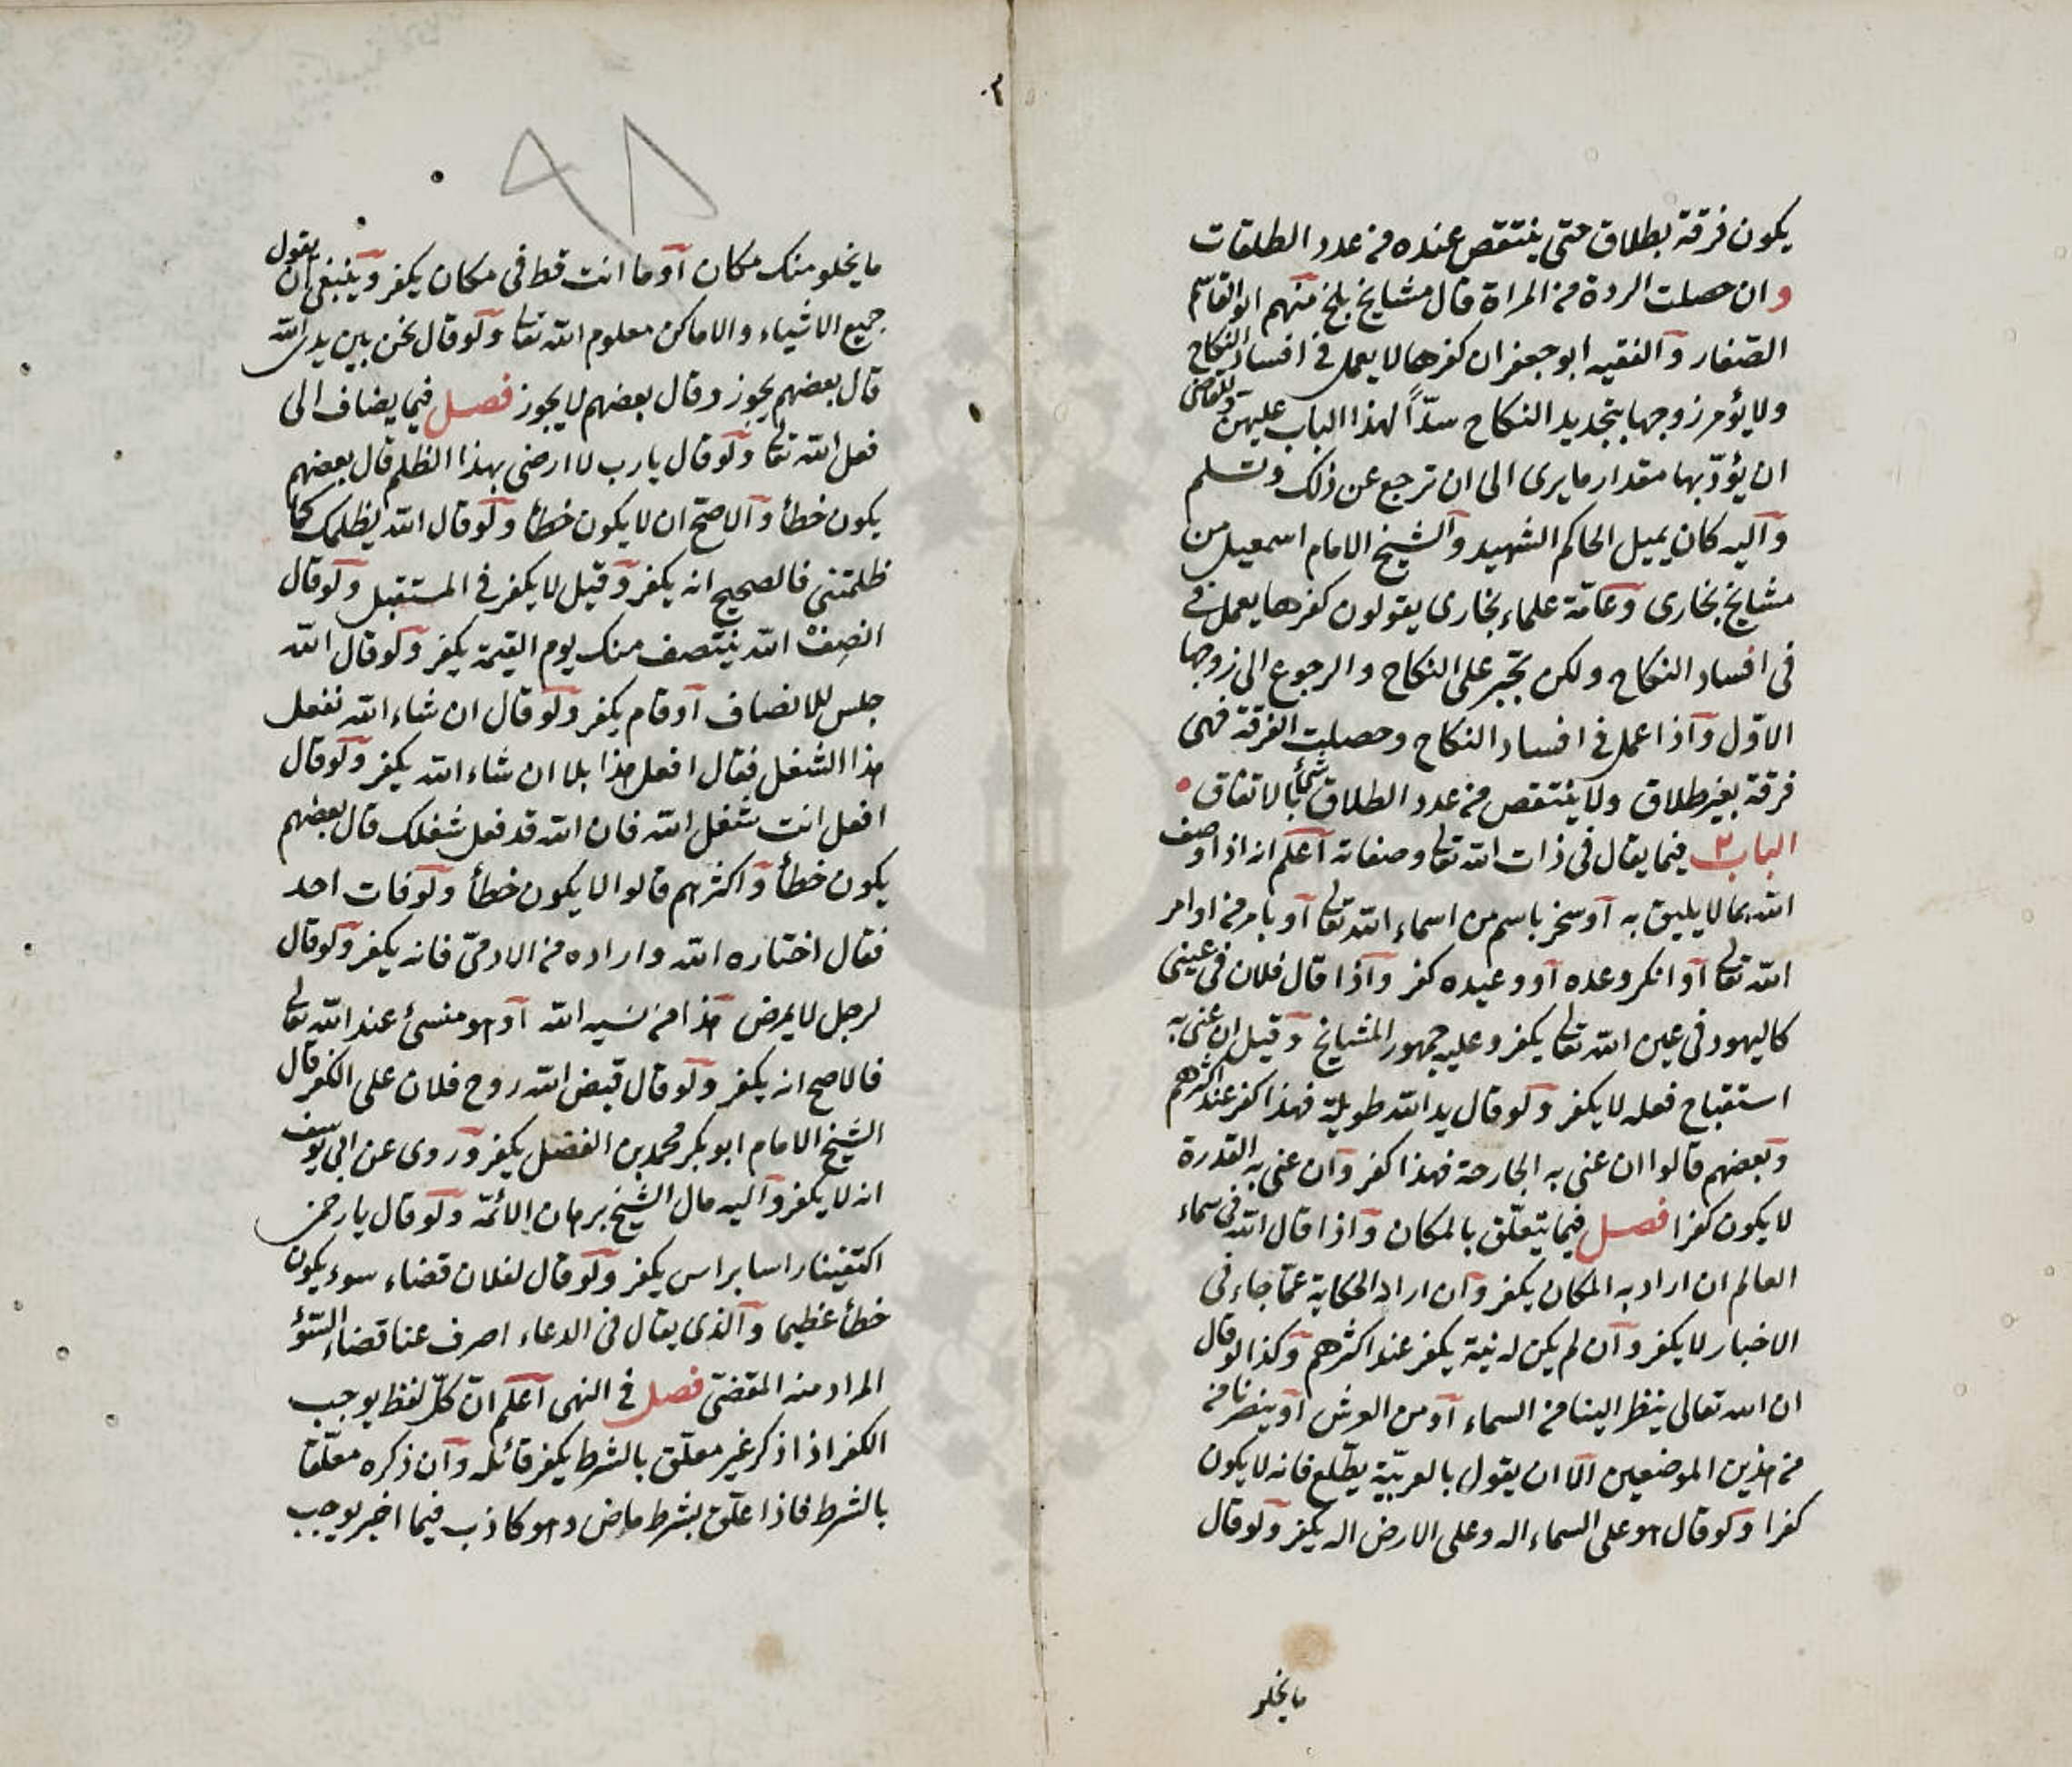 يكون فرقة بطلاق حتى ينتقص عنده من عدد الطلقات
وان حصلت الردة من المراة قال مشايخ بلخ منهم ابو القاسم
الصفار والفقيه ابو جعفر ان كفرها لا يعمل في افساد النكاح
ولا يؤمر زوجها بتجديد النكاح سدّاً لهذا الباب عليهن وللقاضى
ان يؤدّبها مقدار ما يرى الى ان ترجع عن ذلك وتسلم
واليه كان يميل الحاكم الشهيد والشيخ الامام اسمعيل من
مشايخ بخارى وعامّة علماء بخارى يقولون كفرها يعمل في
فى افساد النكاح ولكن تجبر على النكاح والرجوع الى زوجها
الاوّل واذا عمل في افساد النكاح وحصلت الفرقة فهى
فرقة بغير طلاق ولا ينتقص من عدد الطلاق شئ بالاتفاق
الباب ٢ فيما يقال فى ذات الله تعالى وصفاته اعلم انه اذا وصف
الله بما لا يليق به او سخر باسم من اسماء الله تعالى او بامر من اوامر
الله تعالى او انكر وعده او وعيده كفر واذا قال فلان فى عينى
كاليهود فى عين الله تعالى يكفر وعليه جمهور المشايخ وقيل ان عنى به
استقباح فعله لا يكفر ولو قال يد الله طويلة فهذا كفر عند اكثرهم
وبعضهم قالوا ان عنى به الجارحة فهذا كفر وان عنى به القدرة
لا يكون كفرا فصل فيما يتعلّق بالمكان واذا قال الله فى سماء
العالم ان اراد به المكان يكفر وان اراد الحكاية عمّا جاء فى
الاخبار لا يكفر وان لم يكن له نية يكفر عند اكثرهم وكذا لو قال
ان الله تعالى ينظر الينا من السماء او من العرش او ينصرنا من
من هذين الموضعين الا ان يقول بالعربيّة يطّلع فانه لا يكون
كفرا ولو قال هو على السماء اله وعلى الارض اله يكفر ولو قال
ما يخلو
٢٠
٩٨
ما يخلو منك مكان او ما انت قط فى مكان يكفر وينبغى ان يقول
جميع الاشياء والاماكن معلوم الله تعالى ولو قال نحن بين يدى الله
قال بعضهم يجوز وقال بعضهم لا يجوز فصل فيما يضاف الى
فعل الله تعالى ولو قال يا رب لا ارضى بهذا الظلم قال بعضهم
يكون خطأ والاصحّ ان لا يكون خطأ ولو قال الله يظلمك كما
ظلمتنى فالصحيح انه يكفر وقيل لا يكفر في المستقبل ولو قال
انصف الله ينتصف منك يوم القيمة يكفر ولو قال الله
جلس للانصاف او قام يكفر ولو قال ان شاء الله تفعل
هذا الشغل فقال افعل هذا بلا ان شاء الله يكفر ولو قال
افعل انت شغل الله فان الله قد فعل شغلك قال بعضهم
يكون خطأ واكثرهم قالوا لا يكون خطأ ولو فات احد
فقال اختاره الله واراده من الادمىّ فانه يكفر ولو قال
لرجل لا يمرض هذا من نسيه الله او هو منسئ عند الله تعالى
فالاصح انه يكفر ولو قال قبض الله روح فلان على الكفر قال
الشيخ الامام ابو بكر محمد بن الفضل يكفر وروى عن ابى يوسف
انه لا يكفر واليه مال الشيخ برهان الائمّة ولو قال يا رحمن
اكتفينا راسا براس يكفر ولو قال لفلان قضاء سوء يكون
خطأ عظيما والذى يقال فى الدعاء اصرف عنا قضاء السّوء
المراد منه المقضىّ فصل في النهى اعلم ان كلّ لفظ يوجب
الكفر اذا ذكر غير معلّق بالشرط يكفر قائله وان ذكره معلّقا
بالشرط فاذا علّق بشرط ماض وهو كاذب فيما اخبر يوجب